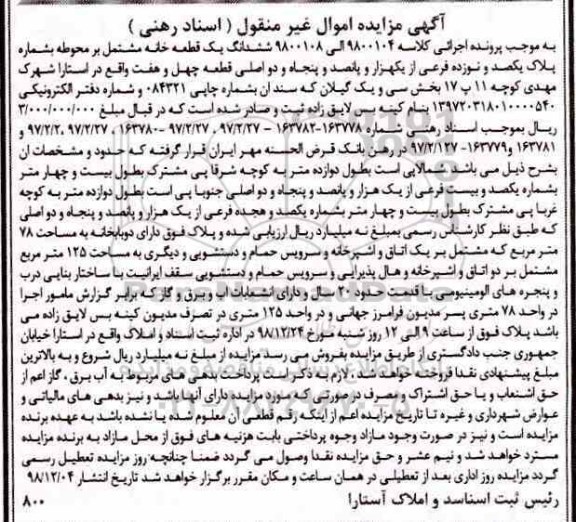 آگهی مزایده اموال غیر منقول ( اسناد رهنی )
به موجب پرونده اجرائی کلاسه ۹۸۰۰۱۰۴ الی ۹۸۰۰۱۰۸ ششدانگ یک قطعه خانه مشتمل بر محوطه بشماره
پلاک یکصد و نوزده فرعی از یکهزار و پانصد و پنجاه و دو اصلی قطعه چهل و هفت واقع در استارا شهرک
مهدی کوچه ۱۱ پ ۱۷ بخش سی و یک گیلان که سند ان بشماره چاپی ۰۸۴۳۲۱ و شماره دفتر الکترونیکی
۱۳۹۷۲۰۳۱۸۰۱۰۰۰۰۵۴۰ بنام کینه بس لایق زاده ثبت و صادر شده است که در قبال مبلغ ۳/۰۰۰/۰۰۰/۰۰۰
ریال بموجب اسناد رهنی شماره ۱۶۳۷۷۸-۱۶۳۷۸۲ - ۹۷/۲/۲۷ ، ۹۷/۲/۲۷ ، ۱۶۳۷۸۰- ۹۷/۲/۲۷ ، ۹۷/۲/۲ و
۱۶۳۷۸۱ و ۱۶۳۷۷۹- ۹۷/۲/۱۲۷ در رهن بانک قرض الحسنه مهر ایران قرار گرفته که حدود و مشخصات ان
بشرح ذیل می باشد شمالاپی است بطول دوازده متر به کوچه شرقا پی مشترک بطول بیست و چهار متر
بشماره یکصد و بیست فرعی از یک هزار و پانصد و پنجاه و دو اصلی جنوبا پی است بطول دوازده متر به کوچه
غربا پی مشترک بطول بیست و چهار متر بشماره یکصد و هجده فرعی از یک هزار و پانصد و پنجاه و دو اصلی
که طبق نظر کارشناس رسمی بمبلغ نه میلیارد ریال ارزیابی شده و پلاک فوق دارای دوبابخانه به مساحت ۷۸
متر مربع که مشتمل بر یک اتاق و اشپرخانه و سرویس حمام و دستشویی و دیگری به مساحت ۱۲۵ متر مربع
مشتمل بر دو اتاق و اشپرخانه و هال پذیرایی و سرویس حمام و دستشویی سقف ایرانیت با ساختار بنایی درب
و پنجره های الومینیومی با قدمت حدود ۲۰ سال و دارای انشعابات اب و برق و گاز که برابر گزارش مامور اجرا
در واحد ۷۸ متری پسر مدیون فرامرز جهانی و در واحد ۱۲۵ متری در تصرف مدیون کینه بس لایق زاده می
باشد پلاک فوق از ساعت ۹ الی ۱۲ روز شنبه مورخ ۹۸/۱۲/۲۴ در اداره ثبت اسناد و املاک واقع در استارا خیابان
جمهوری جنب دادگستری از طریق مزایده بفروش می رسد مزایده از مبلغ نه میلیارد ریال شروع و به بالاترین
مبلغ پیشنهادی نقدا فروخته خواهد شد . لازم به ذکر است پرداخت بدهی های مربوط به آب برق ، گاز اعم از
حق اشتعاب و یا حق اشتراک و مصرف در صورتی که مورد مزایده دارای آنها باشد و نیز بدهی های مالیاتی و
عوارض شهرداری و غیره تا تاریخ مزایده اعم از اینکه رقم قطعی آن معلوم شده یا نشده باشد به عهده برنده
مزایده است و نیز در صورت وجود مازاد وجوه پرداختی بابت هزینه های فوق از محل مازاد به برنده مزایده
مسترد خواهد شد و نیم عشر و حق مزایده نقدا وصول می گردد ضمنا چنانچه روز مزایده تعطیل رسمی
گردد مزایده روز اداری بعد از تعطیلی در همان ساعت و مکان مقرر برگزار خواهد شد تاریخ انتشار ۹۸/۱۲/۰۴
رئیس ثبت اسناسد و املاک آستارا ۸۰۰